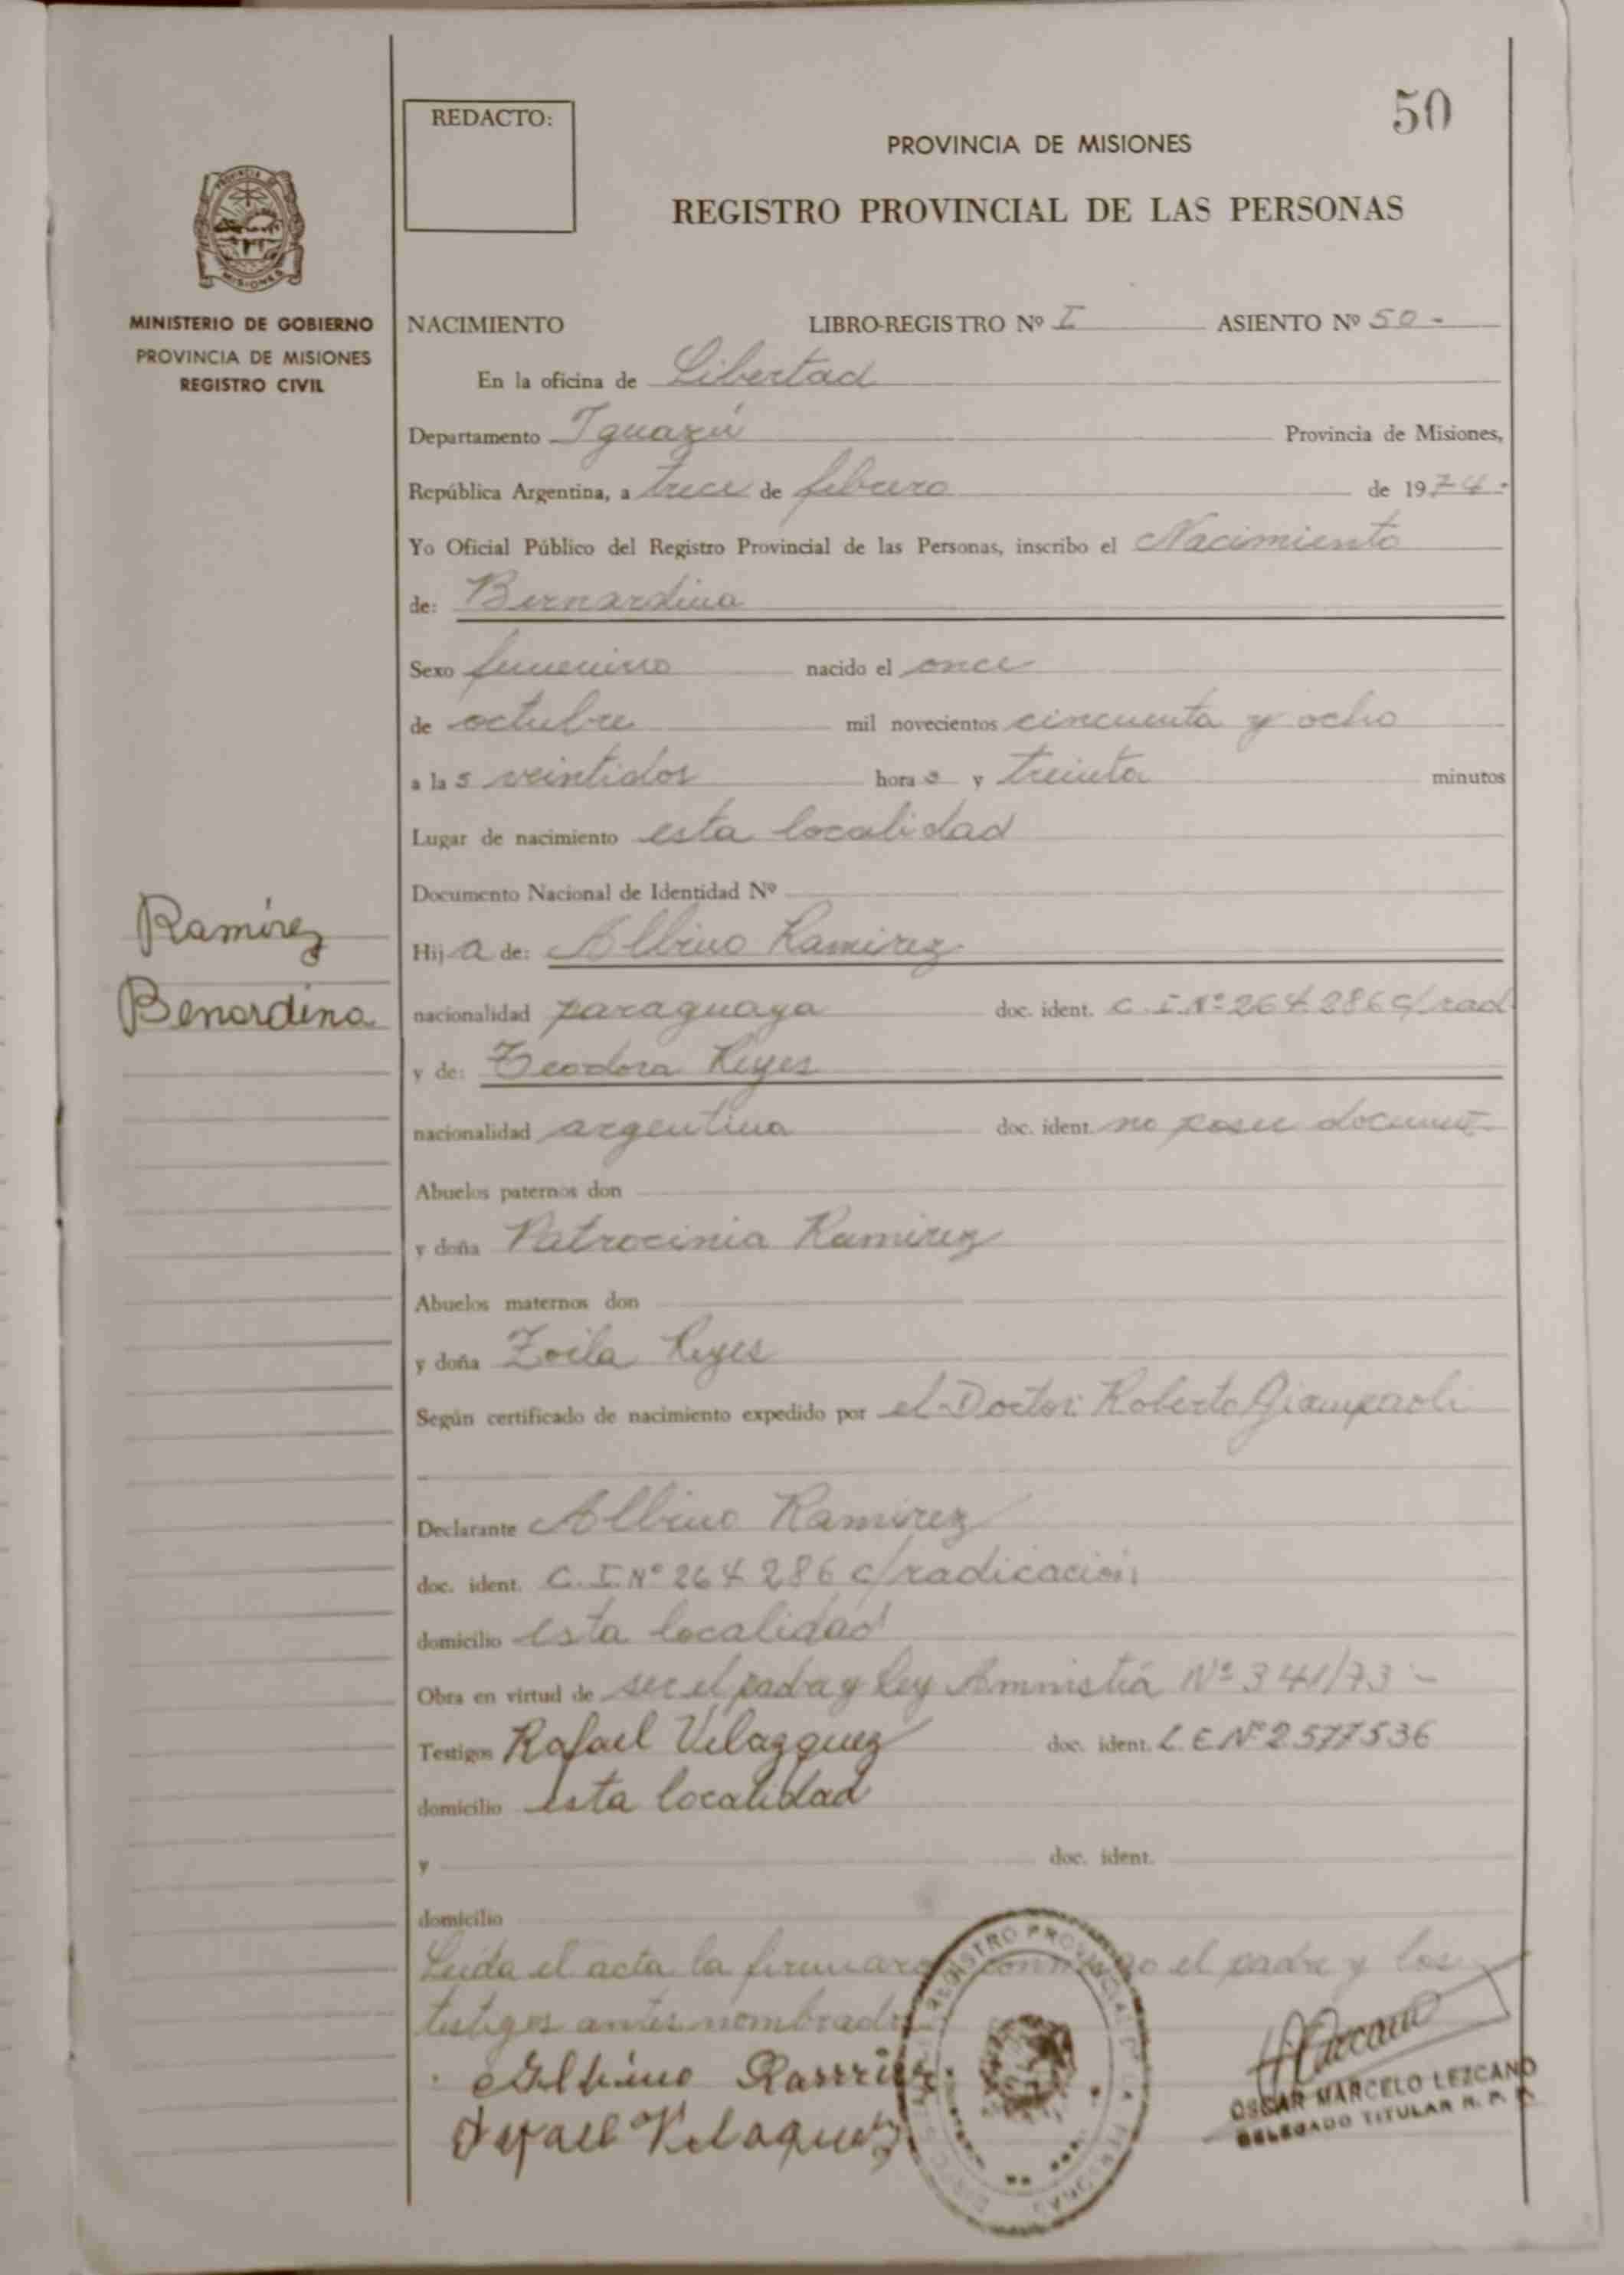 50
REDACTO:
PROVINCIA DE MISIONES
REGISTRO PROVINCIAL DE LAS PERSONAS
PROVINCIA DE
MISIONES
MINISTERIO DE GOBIERNO
PROVINCIA DE MISIONES
REGISTRO CIVIL
NACIMIENTO LIBRO-REGISTRO Nº I ASIENTO Nº 50 -
En la oficina de Libertad
Departamento Iguazú Provincia de Misiones,
República Argentina, a trece de febrero de 1974.-
Yo Oficial Público del Registro Provincial de las Personas, inscribo el Nacimiento
de: Bernardina
Sexo femenino nacido el once
de octubre mil novecientos cincuenta y ocho
a la s veintidos hora s y treinta minutos
Lugar de nacimiento esta localidad
Documento Nacional de Identidad Nº
Ramírez
Benardina
Hij a de: Albino Ramirez
nacionalidad paraguaya doc. ident. C.I.Nº 264286 c/rad
y de: Teodora Reyes
nacionalidad argentina doc. ident. no posee document
Abuelos paternos don
y doña Patrocinia Ramirez
Abuelos maternos don
y doña Zoila Reyes
Según certificado de nacimiento expedido por el Doctor Roberto Giampaoli
Declarante Albino Ramirez
doc. ident. C.I.Nº 264286 c/radicación
domicilio esta localidad
Obra en virtud de ser el padre y Ley Amnistía Nº 341/73 -
Testigos Rafael Velazquez doc. ident. L.E.Nº 2577536
domicilio esta localidad
y doc. ident.
domicilio
Leida el acta la firmaron conmigo el padre y los
testigos antes nombrados
Albino Ramirez
Rafael Velaquez
REGISTRO PROVINCIAL DE LAS PERSONAS
OSCAR MARCELO LEZCANO
DELEGADO TITULAR R. P. P.